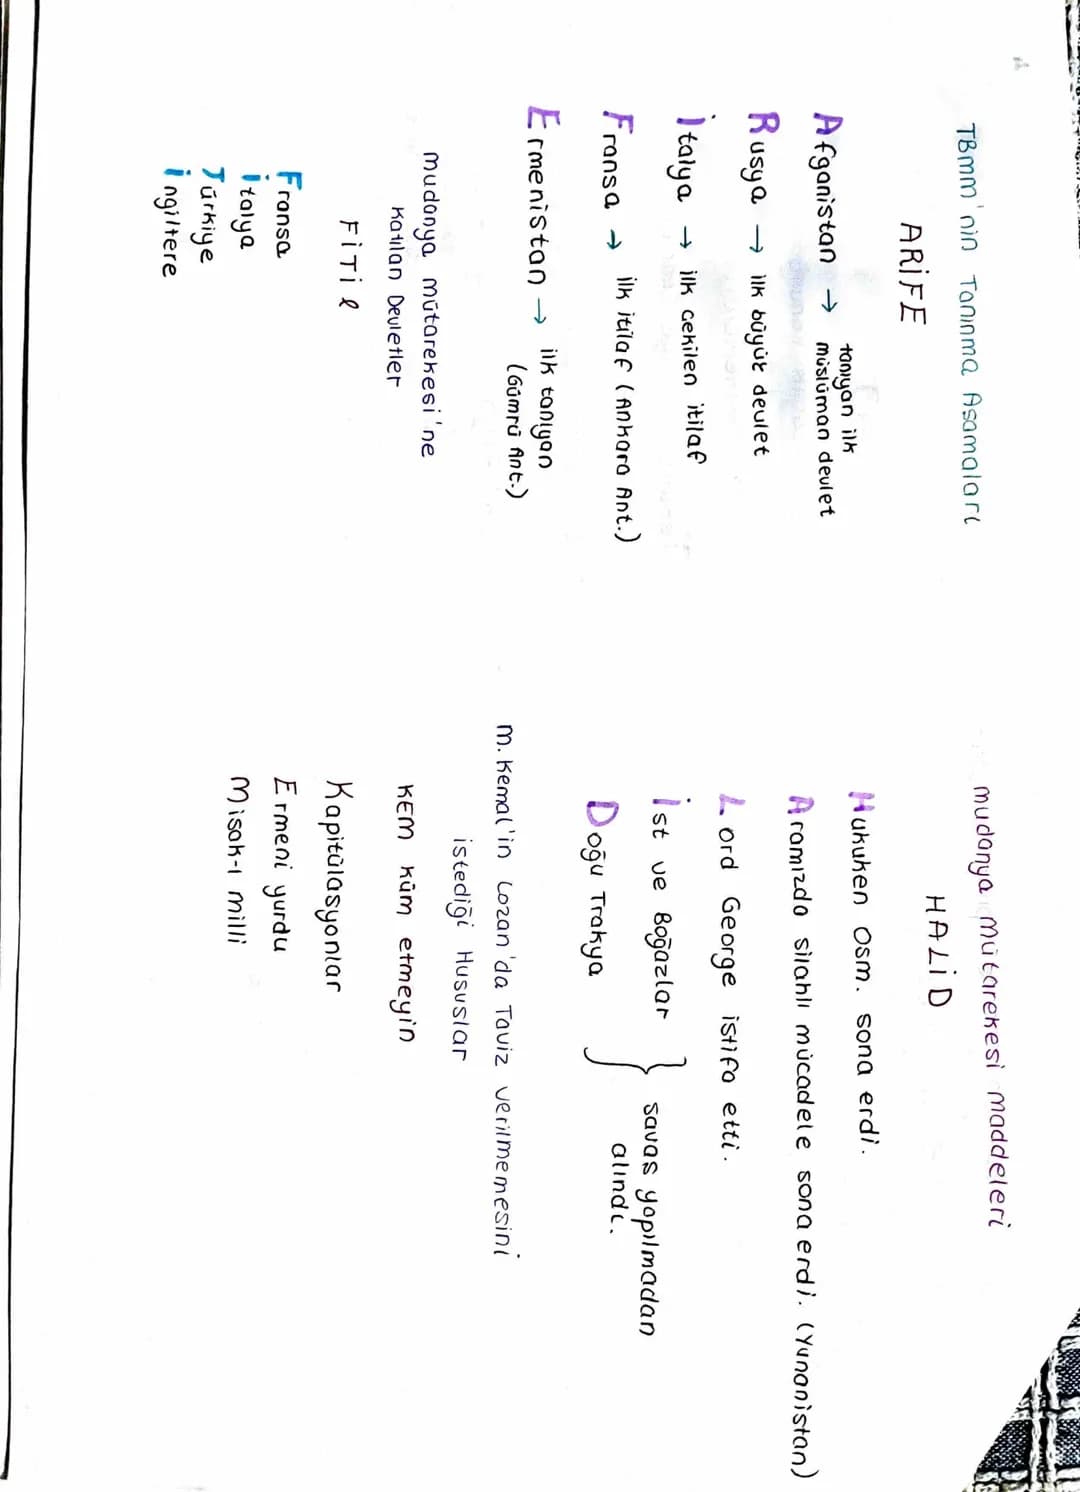 TBmm'nin Tanınma Asamaları
ARİFE
Afganistan → tanıyan ilk
müslüman devlet
Rusya → ilk büyük devlet
İtalya → ilk cekilen itilaf
Fransa → ilk itilaf (Ankara Ant.)
Ermenistan → ilk tanıyan
(Gümrü Ant.)
mudanya mütarekesi'ne
Katılan Devletler
FİTİL
Fransa
İtalya
Türkiye
İngiltere
mudanya mütarekesi maddeleri
HALİD
Hukuken Osm. sona erdi.
Aramızda silahlı mücadele sona erdi. (Yunanistan)
Lord George istifa etti.
İst ve Boğazlar
Doğu Trakya
} savas yapılmadan
alındı.
m. Kemal'in Lozan'da Taviz verilmemesini
istediği Hususlar
KEM küm etmeyin
Kapitülasyonlar
Ermeni yurdu
Misak-ı milli